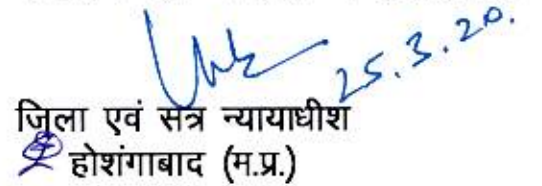 25.3.20.
जिला एवं सत्र न्यायाधीश
होशंगाबाद (म.प्र.)